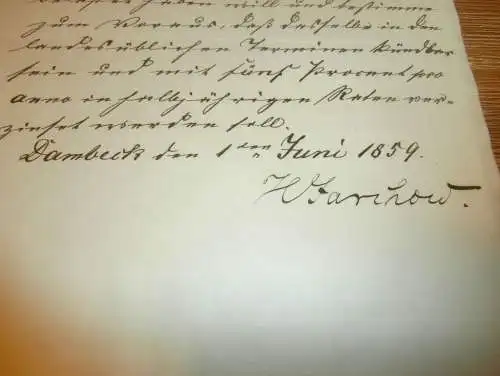 haben will und bestimme
zum Voraus, daß dasselbe in den
landesüblichen Terminen kündbar
sein und mit fünf Procent pro
anno in halbjährigen Raten ver-
zinset werden soll.
Dambeck den 1ten Juni 1859.